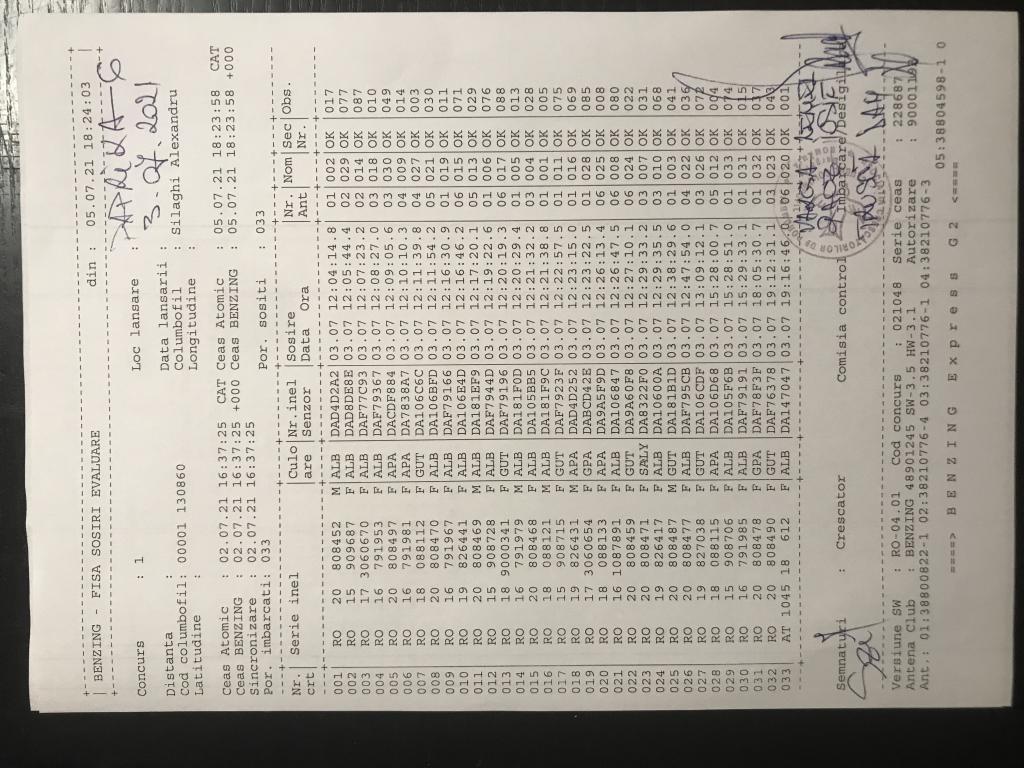 BENZING - FISA SOSIRI EVALUARE din 05.07.21 18:24:03
Concurs : 1 Loc lansare :
Distanta : Data lansarii : 3.07.2021
Cod columbofil: 00001 130860 Columbofil : Silaghi Alexandru
Latitudine : Longitudine :
Ceas Atomic : 02.07.21 16:37:25 CAT Ceas Atomic : 05.07.21 18:23:58 CAT
Ceas BENZING : 02.07.21 16:37:25 +000 Ceas BENZING : 05.07.21 18:23:58 +000
Sincronizare : 02.07.21 16:37:25
Por. imbarcati: 033 Por. sositi : 033
Nr. | Serie inel |Culo|Nr.inel |Sosire |Nr |Nom |Sec |Obs.
crt | |are |Senzor |Data Ora |Ant| |Nr. |
001 RO 20 808452 M ALB DAD4D2A2 03.07 12:04:14.8 01 002 OK 017
002 RO 15 909487 F ALB DAD8DE8E 03.07 12:05:44.4 02 029 OK 077
003 RO 17 3060670 F ALB DAF77C93 03.07 12:07:23.2 02 014 OK 087
004 RO 16 791953 F ALB DAF79367 03.07 12:08:27.0 03 018 OK 010
005 RO 20 808497 F APA DACDF884 03.07 12:09:05.6 03 030 OK 049
006 RO 16 791981 F APA DA7838A7 03.07 12:10:10.3 04 009 OK 014
007 RO 18 088112 F GUT DA106C6C 03.07 12:11:39.8 04 027 OK 003
008 RO 20 808470 F ALB DA106BFD 03.07 12:11:54.2 05 021 OK 030
009 RO 16 791967 F ALB DAF79166 03.07 12:16:30.9 01 019 OK 011
010 RO 19 826441 F ALB DA106E4D 03.07 12:16:46.2 06 015 OK 071
011 RO 20 808469 M ALB DA181EF9 03.07 12:17:20.1 05 013 OK 029
012 RO 15 908728 F ALB DAF7944D 03.07 12:19:22.6 01 006 OK 076
013 RO 18 9000341 F GUT DAF79196 03.07 12:20:16.7 06 017 OK 088
014 RO 16 791979 M ALB DA181F0D 03.07 12:20:29.4 01 005 OK 013
015 RO 20 808468 F ALB DA105BB5 03.07 12:21:32.2 03 004 OK 028
016 RO 18 088121 M ALB DA181F9C 03.07 12:21:38.8 03 001 OK 005
017 RO 15 908715 F GUT DAF7923F 03.07 12:22:57.5 01 011 OK 075
018 RO 19 826431 M APA DAD4D252 03.07 12:23:15.0 01 016 OK 069
019 RO 17 3060654 F GPA DABCD42E 03.07 12:23:22.9 01 028 OK 085
020 RO 18 088133 F ALB DA9A5F9D 03.07 12:26:13.4 06 025 OK 008
021 RO 16 1087891 F ALB DA106847 03.07 12:26:47.5 06 008 OK 080
022 RO 20 808459 F GUT DA9A60F8 03.07 12:27:10.1 06 024 OK 022
023 RO 20 808471 F GALY DA8322F0 03.07 12:29:35.5 03 007 OK 031
024 RO 19 826417 F ALB DA10600A 03.07 12:29:35.5 03 010 OK 068
025 RO 20 808487 M GUT DA181B1D 03.07 12:38:29.6 01 003 OK 041
026 RO 20 808477 F ALB DAF795CB 03.07 12:47:54.0 04 022 OK 036
027 RO 19 827038 F GUT DA106CDF 03.07 13:09:12.1 03 026 OK 072
028 RO 18 088115 F APA DA106D68 03.07 15:28:00.7 05 012 OK 004
029 RO 15 908706 F ALB DA105F6B 03.07 15:28:51.1 01 033 OK 074
030 RO 16 791985 F ALB DAF79191 03.07 15:29:33.1 01 031 OK 015
031 RO 20 808478 F GPA DAF78F3F 03.07 18:05:30.7 01 032 OK 037
032 RO 20 808490 F GUT DAF76378 03.07 19:12:31.1 03 023 OK 043
033 AT 1045 18 612 F ALB DA147047 03.07 19:16:41.0 06 020 OK 001
Semnaturi : Crescator Comisia control Imbarcare/Desigil
Versiune SW : RO-04.01 Cod concurs : 021048 Serie ceas : 228687
Antena Club : BENZING 48901245 SW-3.5 HW-3.1 Autorizare :
Ant.: 01:38800822-1 02:38210776-4 03:38210776-1 04:38210776-3 05:38804598-1 0
====> B E N Z I N G E x p r e s s G 2 <====